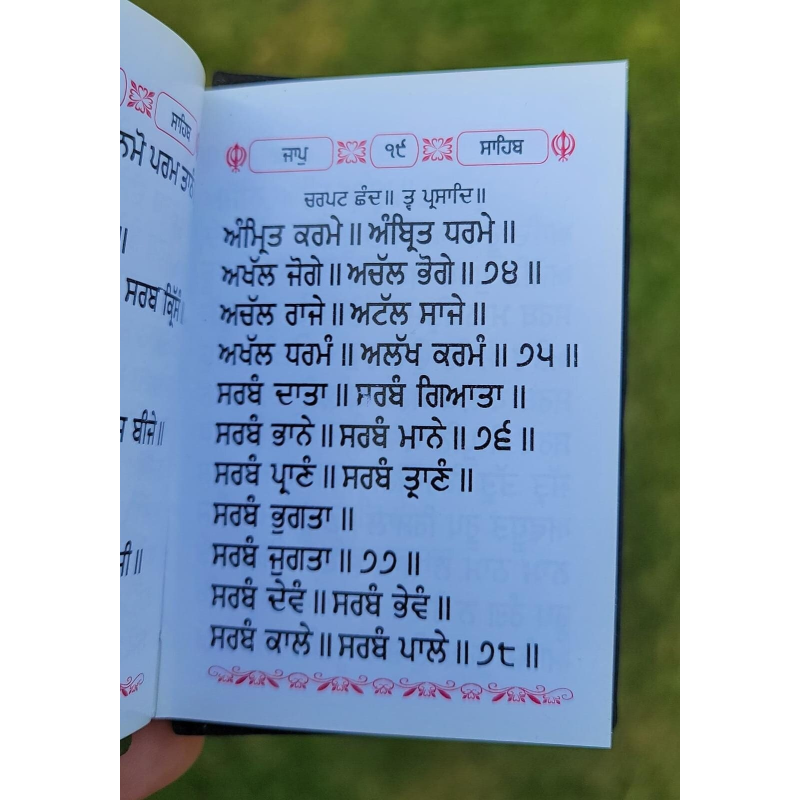 ਸਾਹਿਬ
ਨਮੋ ਪਰਮ
॥
ਸਰਬ
ਬੀਜੇ॥
ਜਾਪੁ ੧੯ ਸਾਹਿਬ
ਚਰਪਟ ਛੰਦ॥ ਤ੍ਵ ਪ੍ਰਸਾਦਿ॥
ਅੰਮ੍ਰਿਤ ਕਰਮੇ॥ ਅੰਬ੍ਰਿਤ ਧਰਮੇ॥
ਅਖੱਲ ਜੋਗੇ॥ ਅਚੱਲ ਭੋਗੇ॥੭੪॥
ਅਚੱਲ ਰਾਜੇ॥ ਅਟੱਲ ਸਾਜੇ॥
ਅਖੱਲ ਧਰਮੰ॥ ਅਲੱਖ ਕਰਮੰ॥੭੫॥
ਸਰਬੰ ਦਾਤਾ॥ ਸਰਬੰ ਗਿਆਤਾ॥
ਸਰਬੰ ਭਾਨੇ॥ ਸਰਬੰ ਮਾਨੇ॥੭੬॥
ਸਰਬੰ ਪ੍ਰਾਣੰ॥ ਸਰਬੰ ਤ੍ਰਾਣੰ॥
ਸਰਬੰ ਭੁਗਤਾ॥
ਸਰਬੰ ਜੁਗਤਾ॥੭੭॥
ਸਰਬੰ ਦੇਵੰ॥ ਸਰਬੰ ਭੇਵੰ॥
ਸਰਬੰ ਕਾਲੇ॥ ਸਰਬੰ ਪਾਲੇ॥੭੮॥